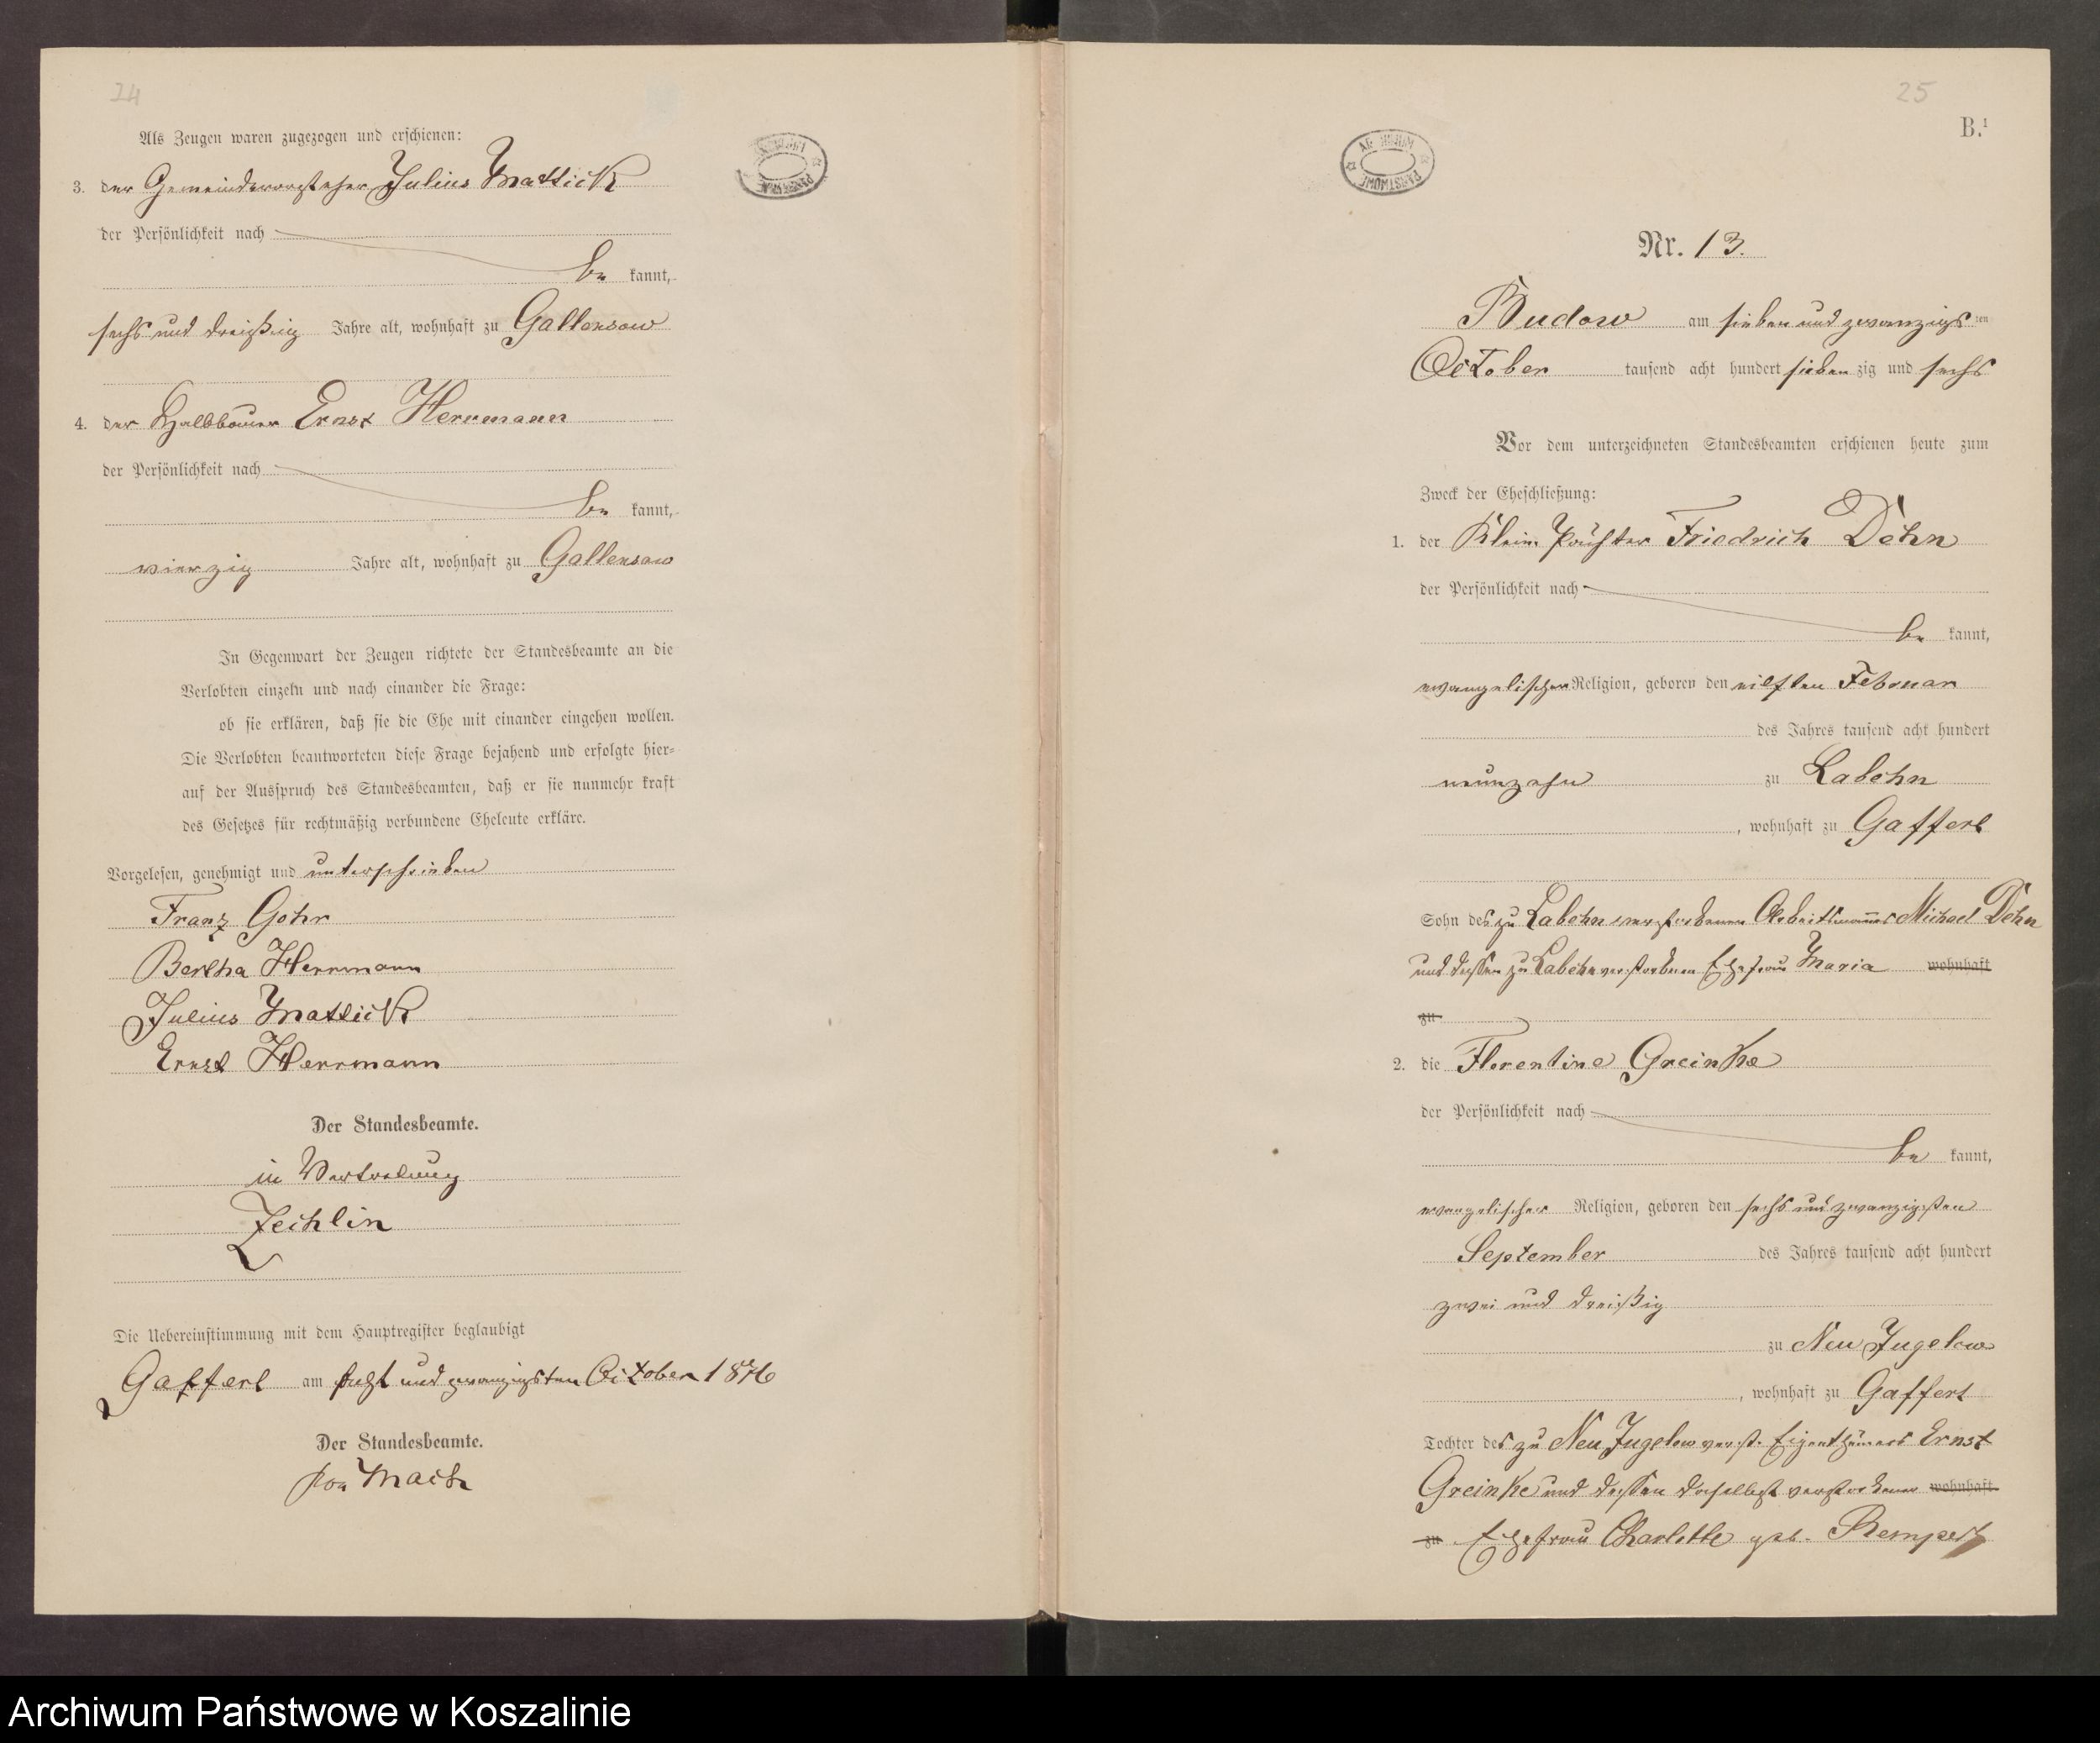 24
Als Zeugen waren zugezogen und erschienen:
3. der Gemeindevorsteher Julius Mattick
der Persönlichkeit nach
be kannt,
sechs und dreißig Jahre alt, wohnhaft zu Gallensow
4. der Halbbauer Ernst Herrmann
der Persönlichkeit nach
be kannt,
vierzig Jahre alt, wohnhaft zu Gallensow
In Gegenwart der Zeugen richtete der Standesbeamte an die
Verlobten einzeln und nach einander die Frage:
ob sie erklären, daß sie die Ehe mit einander eingehen wollen.
Die Verlobten beantworteten diese Frage bejahend und erfolgte hier-
auf der Ausspruch des Standesbeamten, daß er sie nunmehr kraft
des Gesetzes für rechtmäßig verbundene Eheleute erkläre.
Vorgelesen, genehmigt und unterschrieben
Franz Gohr
Bertha Herrmann
Julius Mattick
Ernst Herrmann
Der Standesbeamte.
in Vertretung
Zechlin
Die Uebereinstimmung mit dem Hauptregister beglaubigt
Gaffert am und zwanzigsten October 1876
Der Standesbeamte.
von
25
B.¹
Nr. 13.
Budow am sieben und zwanzigs ten
October tausend acht hundert sieben zig und sechs
Vor dem unterzeichneten Standesbeamten erschienen heute zum
Zweck der Eheschließung:
1. der Klein Pächter Friedrich Dehn
der Persönlichkeit nach
be kannt,
evangelischer Religion, geboren den eilften Februar
des Jahres tausend acht hundert
neunzehn zu Labehn
, wohnhaft zu Gaffert
Sohn des zu Labehn verstorbenen Arbeitsmannes Michael Dehn
und dessen zu Labehn verstorbenen Ehefrau Maria wohnhaft
zu
2. die Florentine Greinke
der Persönlichkeit nach
be kannt,
evangelischer Religion, geboren den sechs und zwanzigsten
September des Jahres tausend acht hundert
zwei und dreißig
zu Neu Jugelow
, wohnhaft zu Gaffert
Tochter des zu Neu Jugelow verst. Eigenthümers Ernst
Greinke und dessen daselbst verstorbener wohnhaft
zu Ehefrau Charlotte geb.
Archiwum Państwowe w Koszalinie